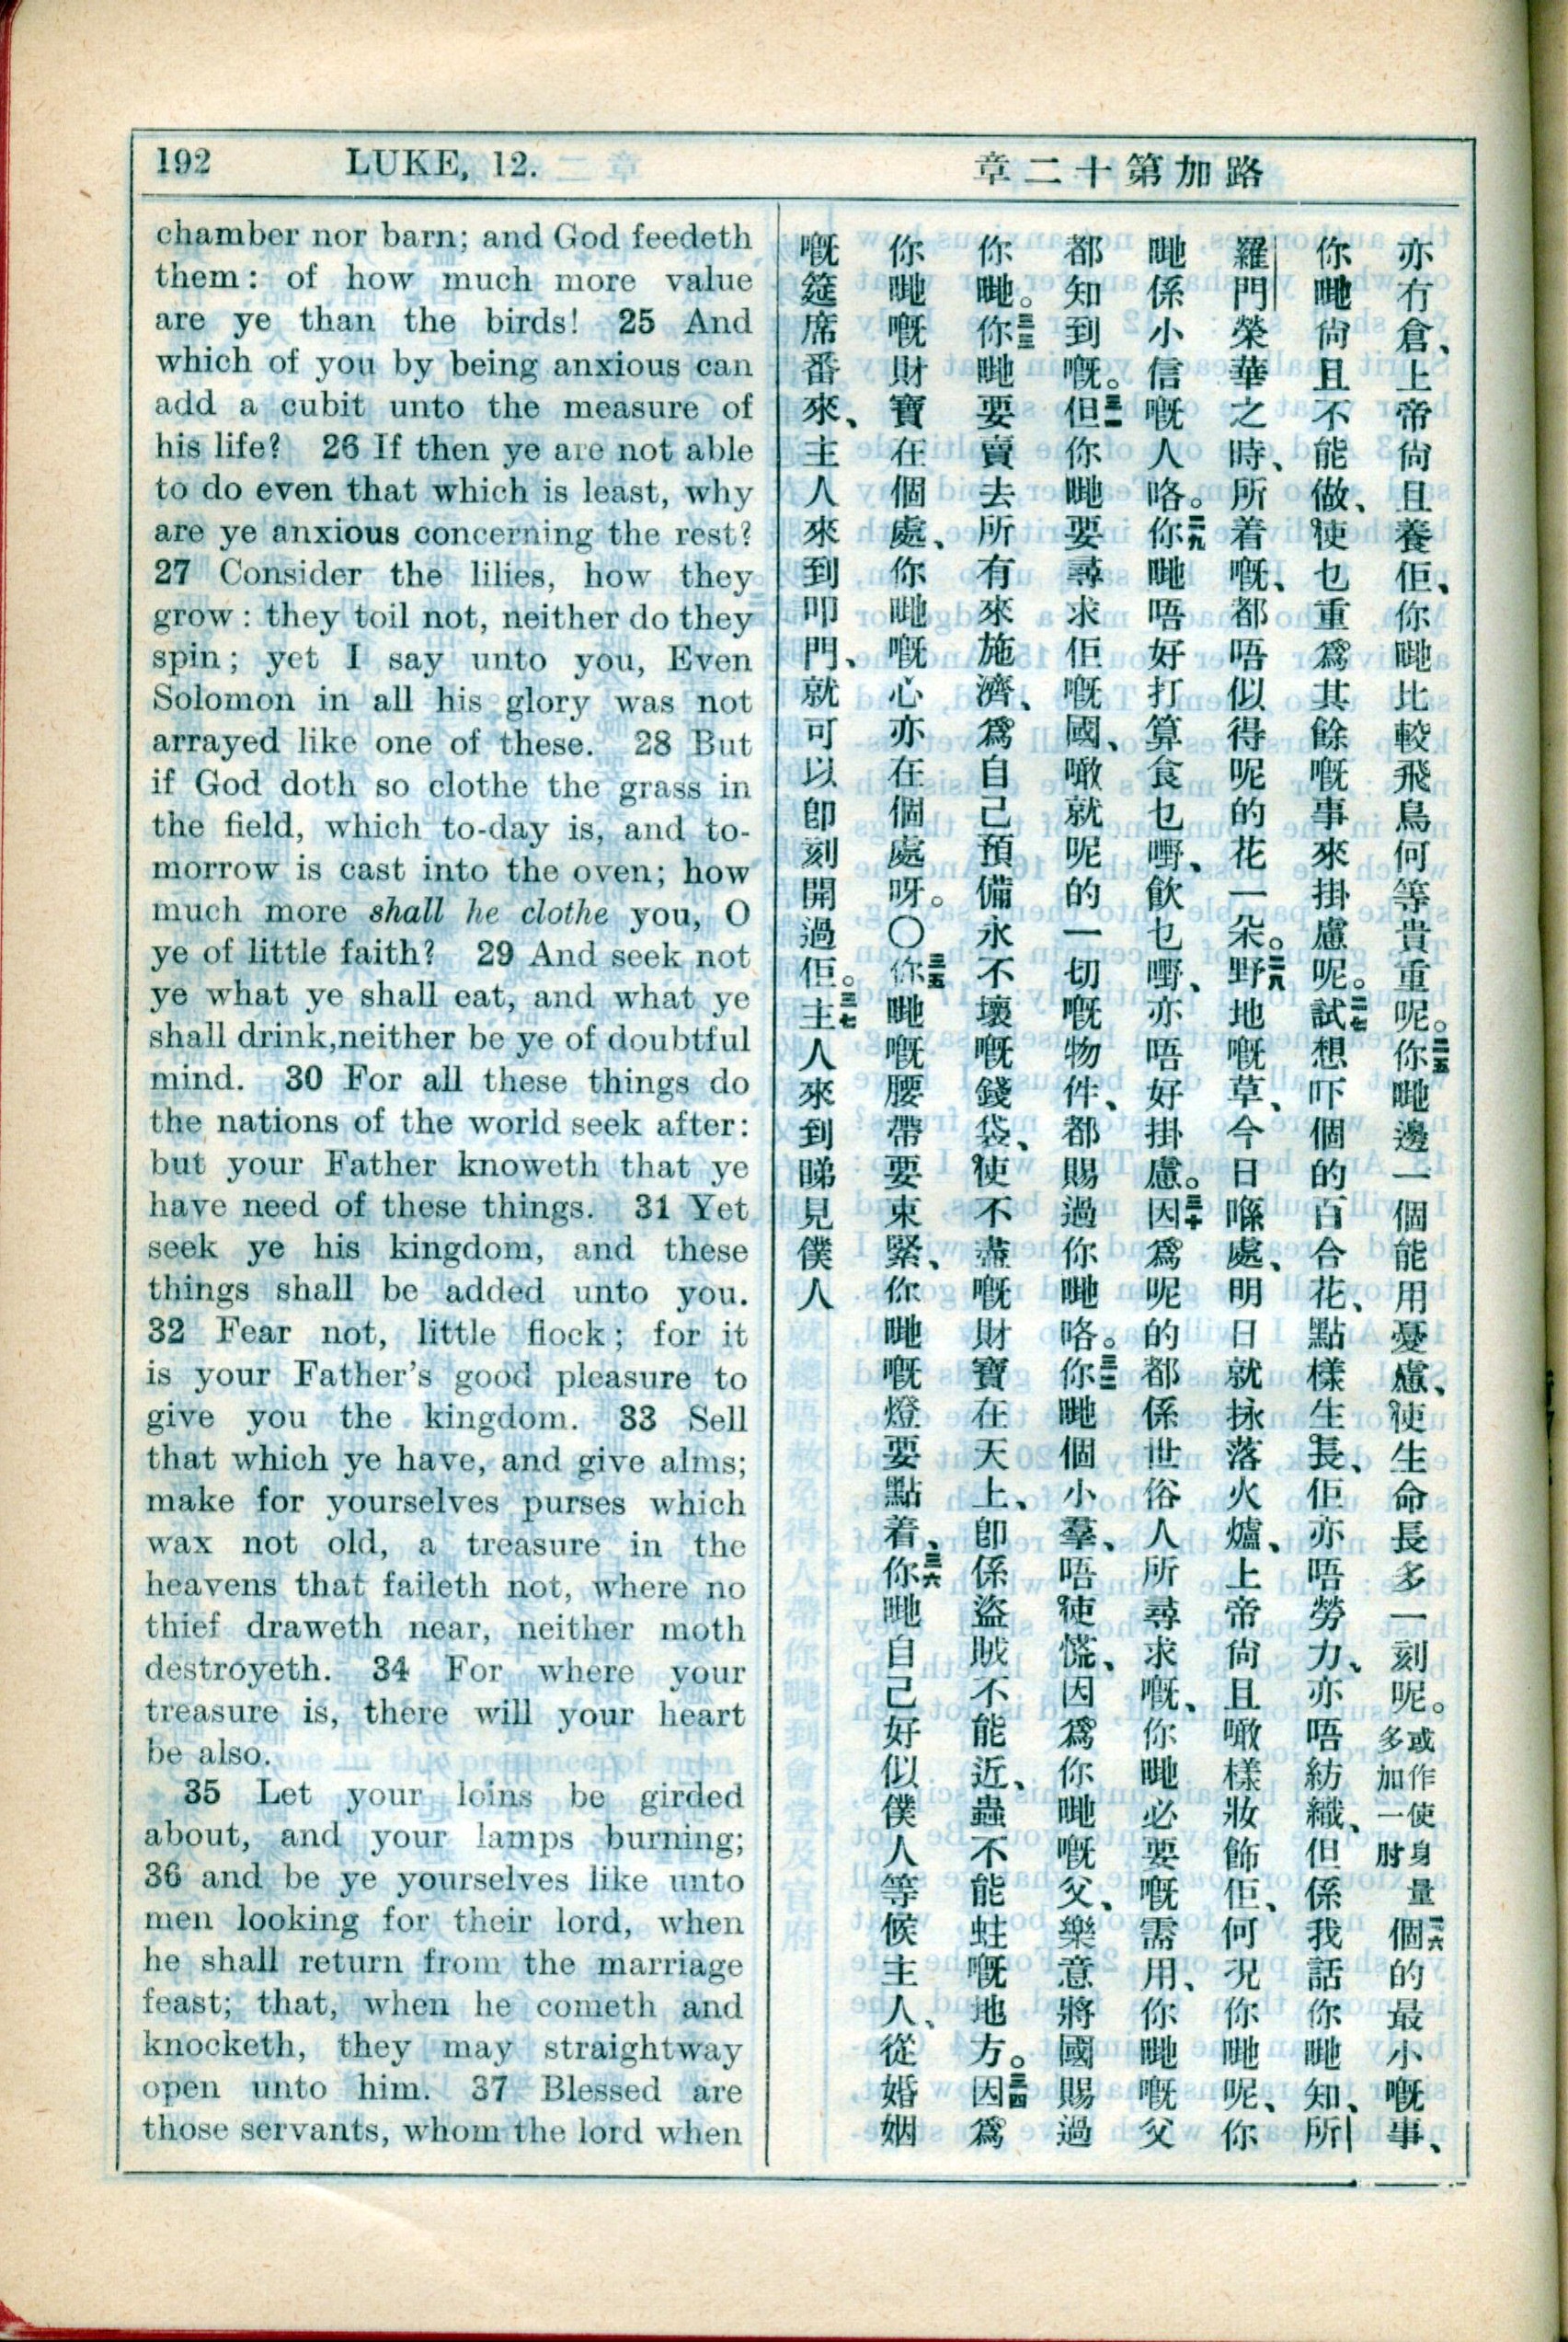 192 LUKE, 12.
路加第十二章
chamber nor barn; and God feedeth
them: of how much more value
are ye than the birds! 25 And
which of you by being anxious can
add a cubit unto the measure of
his life? 26 If then ye are not able
to do even that which is least, why
are ye anxious concerning the rest?
27 Consider the lilies, how they
grow: they toil not, neither do they
spin; yet I say unto you, Even
Solomon in all his glory was not
arrayed like one of these. 28 But
if God doth so clothe the grass in
the field, which to-day is, and to-
morrow is cast into the oven; how
much more shall he clothe you, O
ye of little faith? 29 And seek not
ye what ye shall eat, and what ye
shall drink,neither be ye of doubtful
mind. 30 For all these things do
the nations of the world seek after:
but your Father knoweth that ye
have need of these things. 31 Yet
seek ye his kingdom, and these
things shall be added unto you.
32 Fear not, little flock; for it
is your Father's good pleasure to
give you the kingdom. 33 Sell
that which ye have, and give alms;
make for yourselves purses which
wax not old, a treasure in the
heavens that faileth not, where no
thief draweth near, neither moth
destroyeth. 34 For where your
treasure is, there will your heart
be also.
35 Let your loins be girded
about, and your lamps burning;
36 and be ye yourselves like unto
men looking for their lord, when
he shall return from the marriage
feast; that, when he cometh and
knocketh, they may straightway
open unto him. 37 Blessed are
those servants, whom the lord when
亦冇倉、上帝尙且養佢、你哋比較飛鳥何等貴重呢。二五你哋邊一個能用憂慮、使生命長多一刻呢。或作使身量多加一肘二六個的最小嘅事、
你哋尙且不能做、使乜重爲其餘嘅事來掛慮呢。二七試想吓個的百合花、點樣生長、佢亦唔勞力、亦唔紡織、但係我話你哋知、所
羅門榮華之時、所着嘅、都唔似得呢的花一朶。二八野地嘅草、今日喺處、明日就抹落火爐、上帝尙且噉樣妝飾佢、何况你哋呢、你
哋係小信嘅人咯。二九你哋唔好打算食乜嘢、飮乜嘢、亦唔好掛慮。三十因爲呢的都係世俗人所尋求嘅、你哋必要嘅需用、你哋嘅父
都知到嘅。三一但你哋要尋求佢嘅國、噉就呢的一切嘅物件、都賜過你哋咯。三二你哋個小羣、唔使慌、因爲你哋嘅父、樂意將國賜過
你哋。三三你哋要賣去所有來施濟、爲自己預備永不壞嘅錢袋、使不盡嘅財寶在天上、卽係盜賊不能近、蟲不能蛀嘅地方。三四因爲
你哋嘅財寶在個處、你哋嘅心亦在個處呀。〇三五你哋嘅腰帶要束緊、你哋嘅燈要點着、三六你哋自己好似僕人等候主人、從婚姻
嘅筵席番來、主人來到叩門、就可以卽刻開過佢。三七主人來到睇見僕人